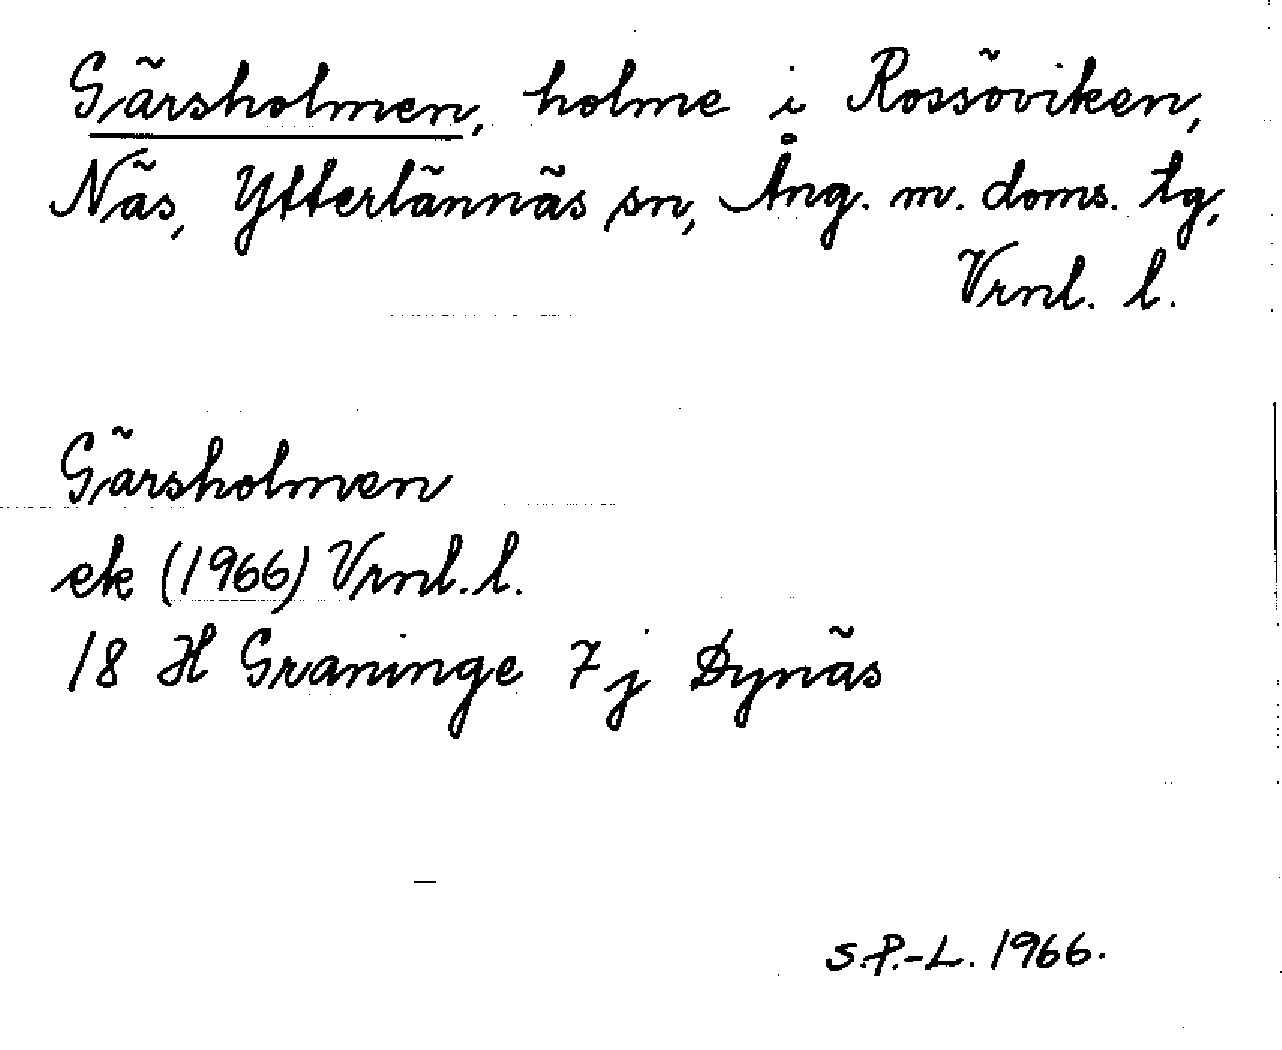 Gärsholmen, holme i Rossöviken,
Näs, Ytterlännäs sn, Ång. m. doms. tg,
Vrnl. l.
Gärsholmen
ek (1966) Vrnl. l.
18 H Graninge 7 j Dynäs
S.P.-L. 1966.